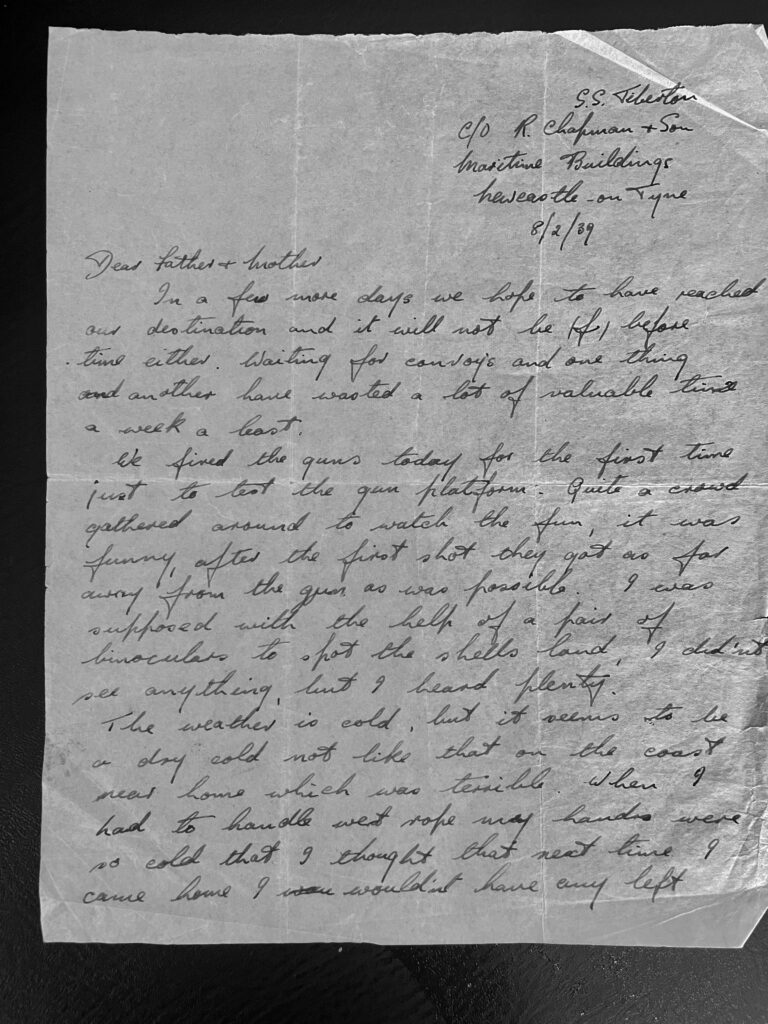 S.S. Tiberton
C/O R. Chapman + Son
Maritime Buildings
Newcastle-on Tyne
8/2/39
Dear Father + Mother
In a few more days we hope to have reached
our destination and it will not be (f) before
time either. Waiting for convoys and one thing
and another have wasted a lot of valuable time
a week a least.
We fired the guns today for the first time
just to test the gun platform. Quite a crowd
gathered around to watch the fun, it was
funny, after the first shot they got as far
away from the gun as was possible. I was
supposed with the help of a pair of
binoculars to spot the shells land, I did'nt
see anything, but I heard plenty.
The weather is cold, but it seems to be
a dry cold not like that on the coast
near home which was terrible. When I
had to handle wet rope my hands were
so cold that I thought that next time I
came home I would'nt have any left